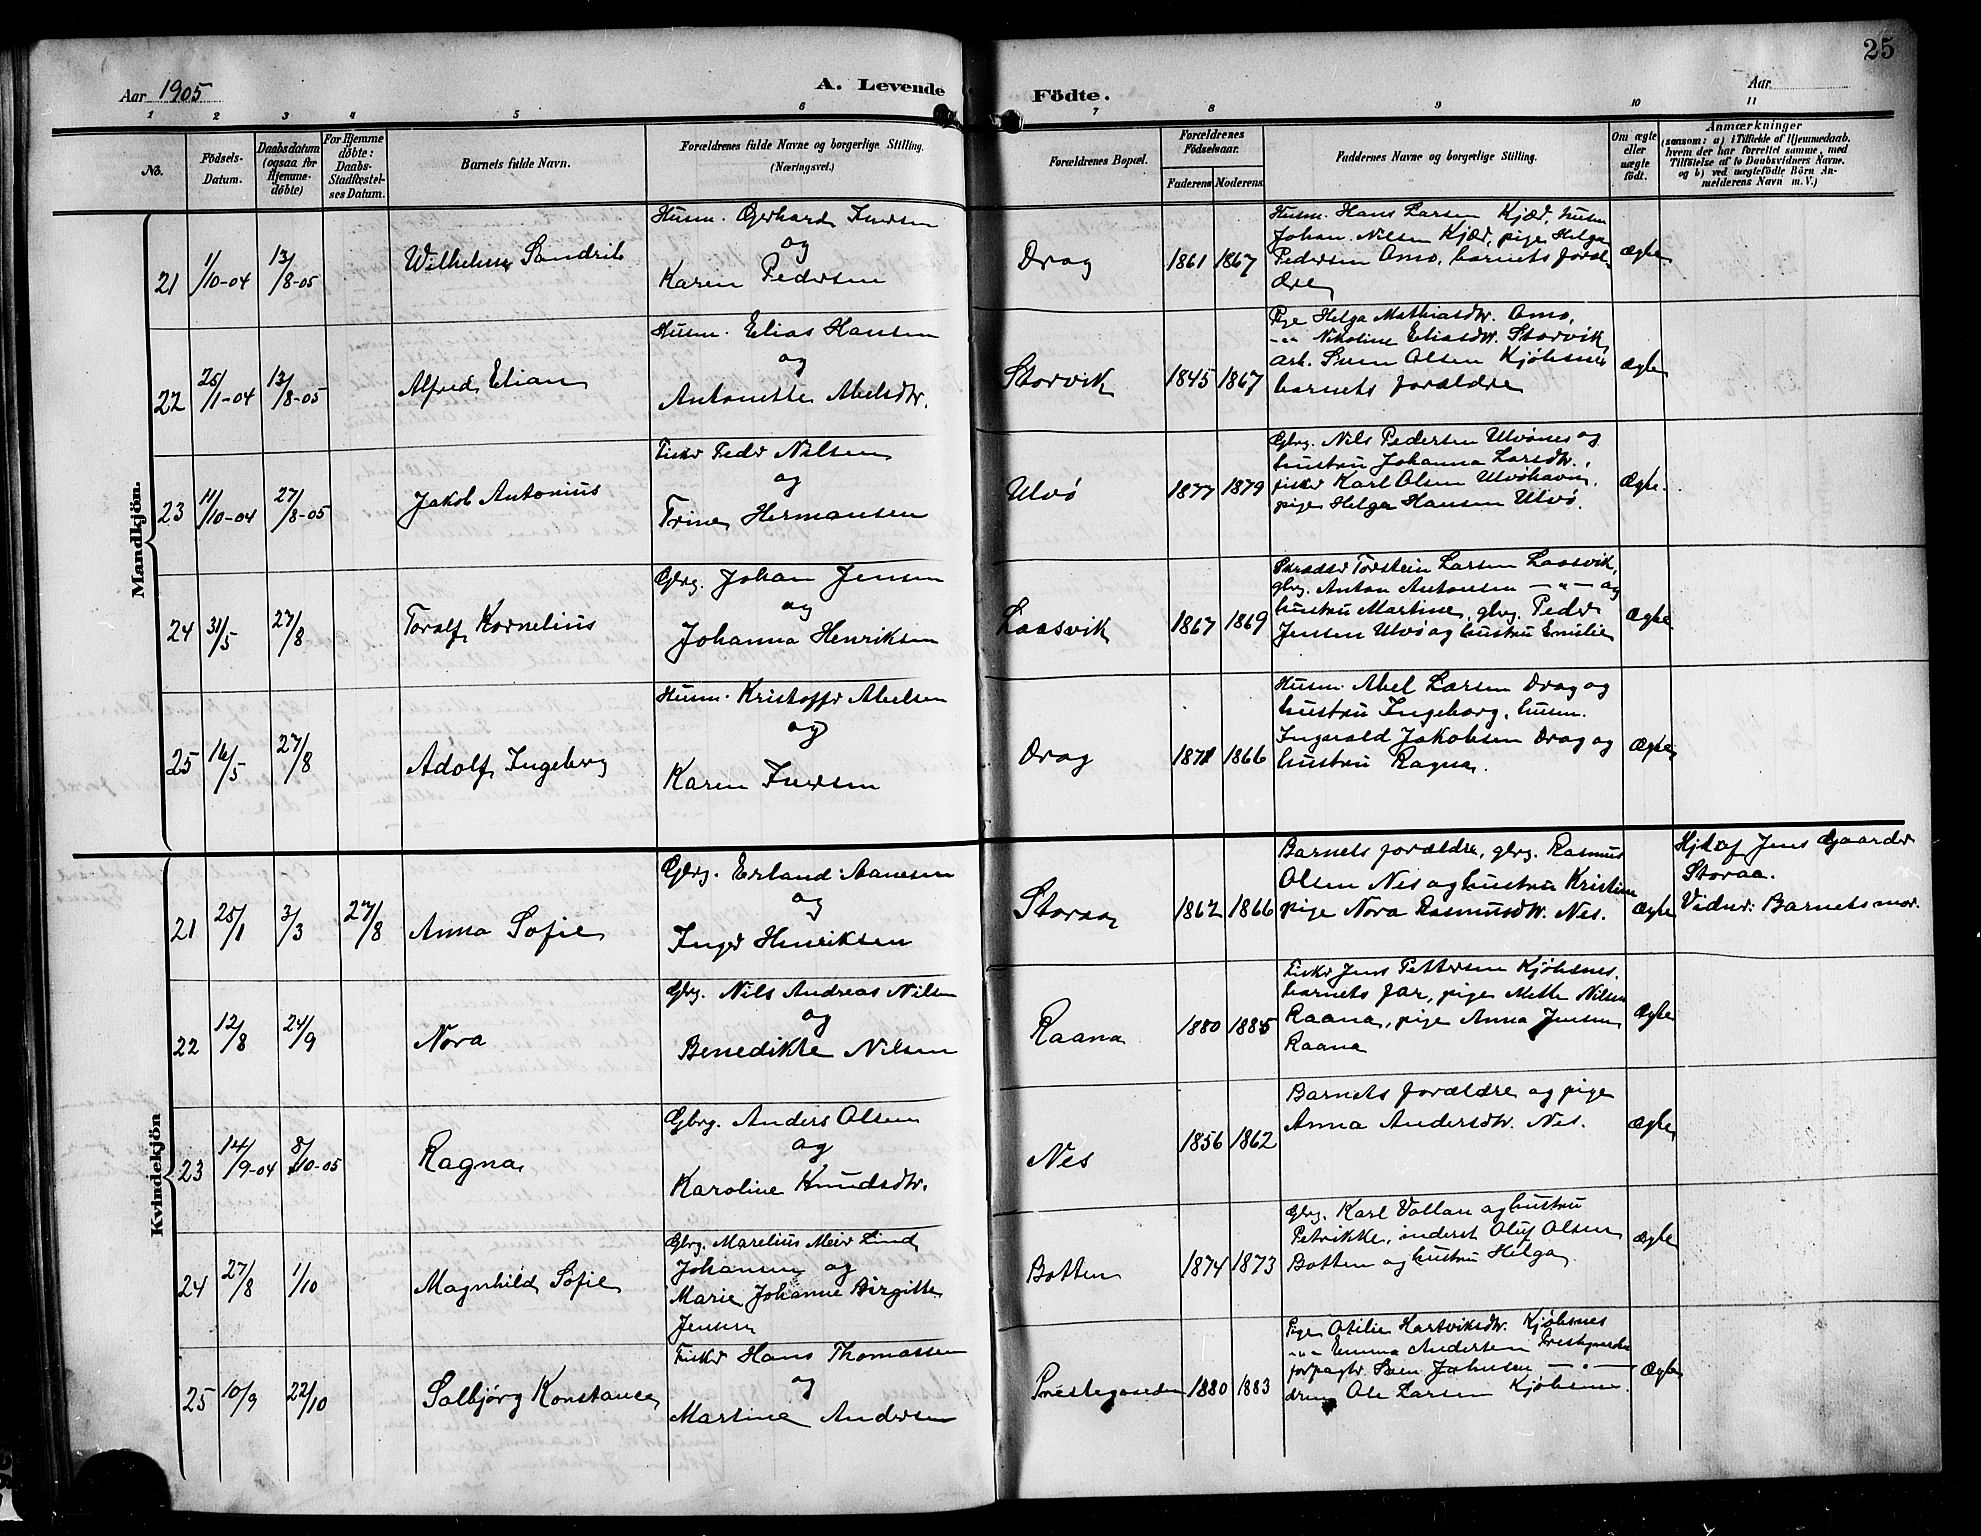 25
Aar 1905
A. Levende Födte.
Aar
1 2 3 4 5 6 7 8 9 10 11
No.
Födsels-Datum.
Daabsdatum (ogsaa for Hjemme-döbte)
For Hjemme döbte: Daabs-Stadfæstel-ses Datum.
Barnets fulde Navn.
Forældrenes fulde Navne og borgerlige Stilling.
(Næringsvei.)
Forældrenes Bopæl.
Forældrenes Födselsaar.
Faderens Moderens
Faddernes Navne og borgerlige Stilling.
Om ægte eller uægte födt.
Anmærkninger
(saasom: a) i Tilfælde af Hjemmedaab, hvem der har forrettet samme, med Tilföielse af to Daabsvidners Navne. og b) ved uægtefödte Börn An-melderens Navn m. V.)
Mandkjön.
21 1/10-04 13/8-05 Wilhelm Sandrib
Husm. Gerhard Iversen
og
Karen Pedersen
Drag 1861 1867
Husm. Hans Larsen Kjær, husm
Johan Nilsen Kjær, pige Helga
Pedersen Omo, barnets foræl-
dre
Ægte
22 25/1-04 13/8-05 Alfred Elian
Husm. Elias Hansen
og
Antonette Abelsdtr.
Storvik 1845 1867
Pige Helga Mathiasdtr. Omo,
-"- Nikoline Eliasdtr. Storvik
arb. Sven Olsen Kjøbsnes
barnets forældre
Ægte
23 11/10-04 27/8-05 Jakob Antonius
Fisker Peder Nilsen
og
Trine Hermansen
Ulvø 1877 1879
Gbrg. Nils Pedersen Ulvønes og
hustru Johanna Larsdtr.,
fisker Karl Olsen Ulvøhavn,
pige Helga Hansen Ulvø.
Ægte.
24 31/5 27/8 Toralf Kornelius
Gbrg. Johan Jensen
og
Johanna Henriksen
Laasvik 1867 1869
Skræder Torstein Larsen Laasvik,
gbrg. Anton Antonsen -"- og
hustru Martine, gbrg. Peder
Jensen Ulvø og hustru Emilie
Ægte.
25 16/5 27/8 Adolf Ingeberg
Husm. Kristoffer Abelsen
og
Karen Iversen
Drag 1871 1866
Husm. Abel Larsen Drag og
hustru Ingeborg, husm.
Ingvald Jakobsen Drag og
hustru Ragna.
Ægte
Kvindekjön
21 25/1 3/3 27/8 Anna Sofie
Gbrg. Erland Aanesen
og
Inger Henriksen
Storaa 1862 1866
Barnets forældre, gbrg. Rasmus
Olsen Nes og hustru Kristine
pige Nora Rasmusdtr. Nes.
Ægte
Hjd. af Jens Gaarder
Storaa.
Vidner: Barnets mor.
22 12/8 24/9 Nora
Gbrg. Nils Andreas Nilsen
og
Benedikte Nilsen
Raana 1880 1885
Fisker Jens Pettersen Kjøbsnes.
barnets far, pige Mette Nilsen
Raana, pige Anna Jensen
Raana
Ægte
23 14/9-04 8/10-05 Ragna
Gbrg. Anders Olsen
og
Karoline Knudsdtr.
Nes 1856 1862
Barnets forældre og pige
Anna Andersdtr. Nes.
Ægte
24 27/8 1/10 Magnhild Sofie
Gbrg. Marelius Meier Lind
Johansen og
Marie Johanne Birgitte
Jensen
Botten 1874 1873
Gbrg. Karl Vollan og hustru
Petrikke, inderst Oluf Olsen
Botten og hustru Helga
Ægte
25 10/9 22/10 Solbjørg Konstance
Fisker Hans Thomassen
og
Martine Andersen
Prestegaarden 1880 1883
Pige Otilie Hartviksdtr. Kjøbsnes
-"- Emma Andersen
forpagter Johnsen -"-
dreng Ole Larsen Kjøbsnes.
Ægte